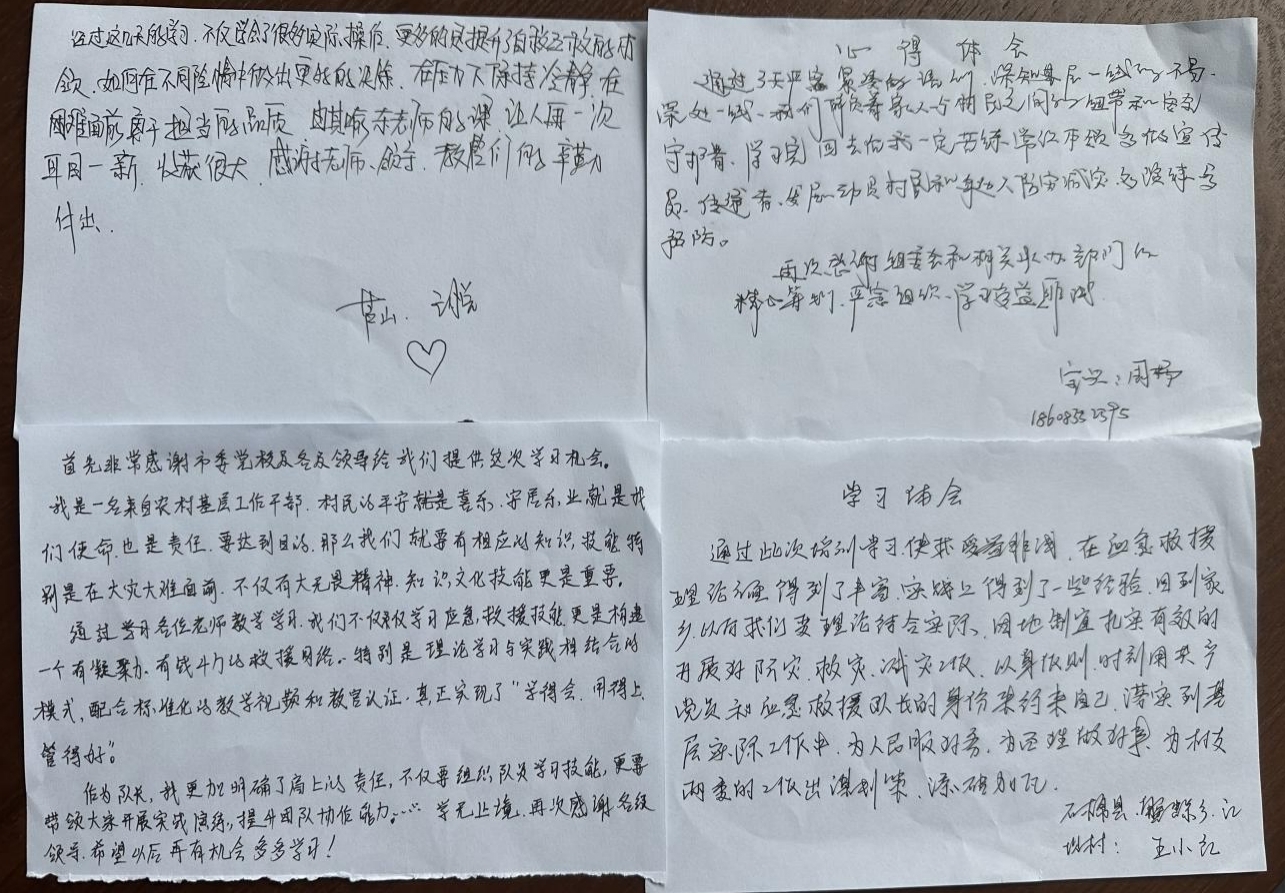 经过这几天的学习、不仅学会了很多实际操作、更多的是提升了自救互救的技
能、如何在不同险情中做出更好的决策、在压力下保持冷静、在
困难面前勇于担当的品质 尤其喻东老师的课、让人再一次
耳目一新、收获很大、感谢老师、领导、教官们的辛勤力
付出、
芦山、
心得体会
通过3天严密紧凑的培训、深知基层一线的不易、
深处一线、我们
守护者、学习完回去后我一定苦练
员、传递者、发展动员村民和
预防。
再次感谢组委会和相关承办部门的
精心筹划、严密组织、学习受益匪浅
宝兴:周
首先非常感谢市委党校及各级领导给我们提供这次学习机会。
我是一名来自农村基层工作干部、村民的平安就是喜乐、安居乐业就是我
们使命也是责任、要达到目的、那么我们就要有相应的知识、技能、特
别是在大灾大难面前、不仅有大无畏精神、知识文化技能更是重要。
通过学习各位老师教学学习、我们不仅仅学习应急、救援技能、更是构建
一个有凝聚力、有战斗力的救援网络。特别是理论学习与实践相结合的
模式、配合标准化的教学视频和教官认证、真正实现了"学得会、用得上、
管得好"。
作为队长、我更加明确了肩上的责任、不仅要组织队员学习技能、更要
带领大家开展实战演练、提升团队协作能力…… 学无止境、再次感谢各级
领导、希望以后再有机会多多学习!
学习体会
通过此次培训学习使我受益匪浅、在应急救援
理论上得到了丰富、实践上得到了一些经验、回到家
乡、以后我们要理论结合实际、因地制宜扎实有效的
开展好防灾、救灾、减灾工作、以身作则、时刻用共产
党员和应急救援队长的身份来约束自己、落实到基
层实际工作中、为人民服好务、为百姓做好事、为村支
两委的工作出谋划策、添砖加瓦、
石棉县、
村: 王小红